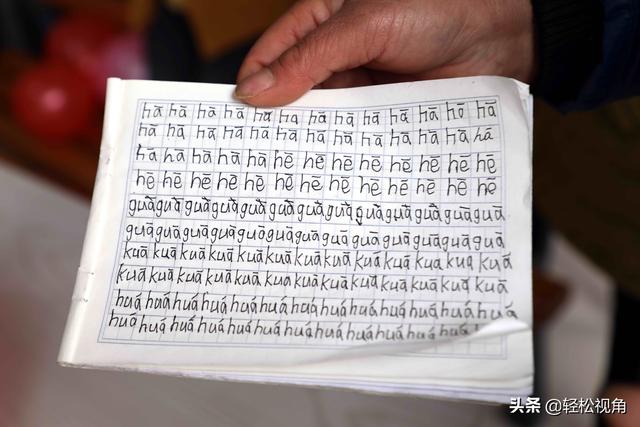 hā hā hā hā hā hā hā hā hā hā hā hā hā
hā hā hā hā hā hā hā hā hā hā hā hā hā
hā hā hā hā hā hē hē hē hē hē hē hē hē
hē hē hē hē hē hē hē hē hē hē hē hē hē
guā guā guā guā guā guā guā guā guā guā guā guā guā
guā guā guā guā guā guā guā guā guā guā guā guā guā
kuā kuā kuā kuā kuā kuā kuā kuā kuā kuā kuā kuā kuā
kuā kuā kuā kuā kuā kuā kuā kuā kuā kuā kuā kuā kuā
huá huá huá huá huá huá huá huá huá huá huá huá huá
huá huá huá huá huá huá huá huá huá huá huá huá
头条 @轻松视角